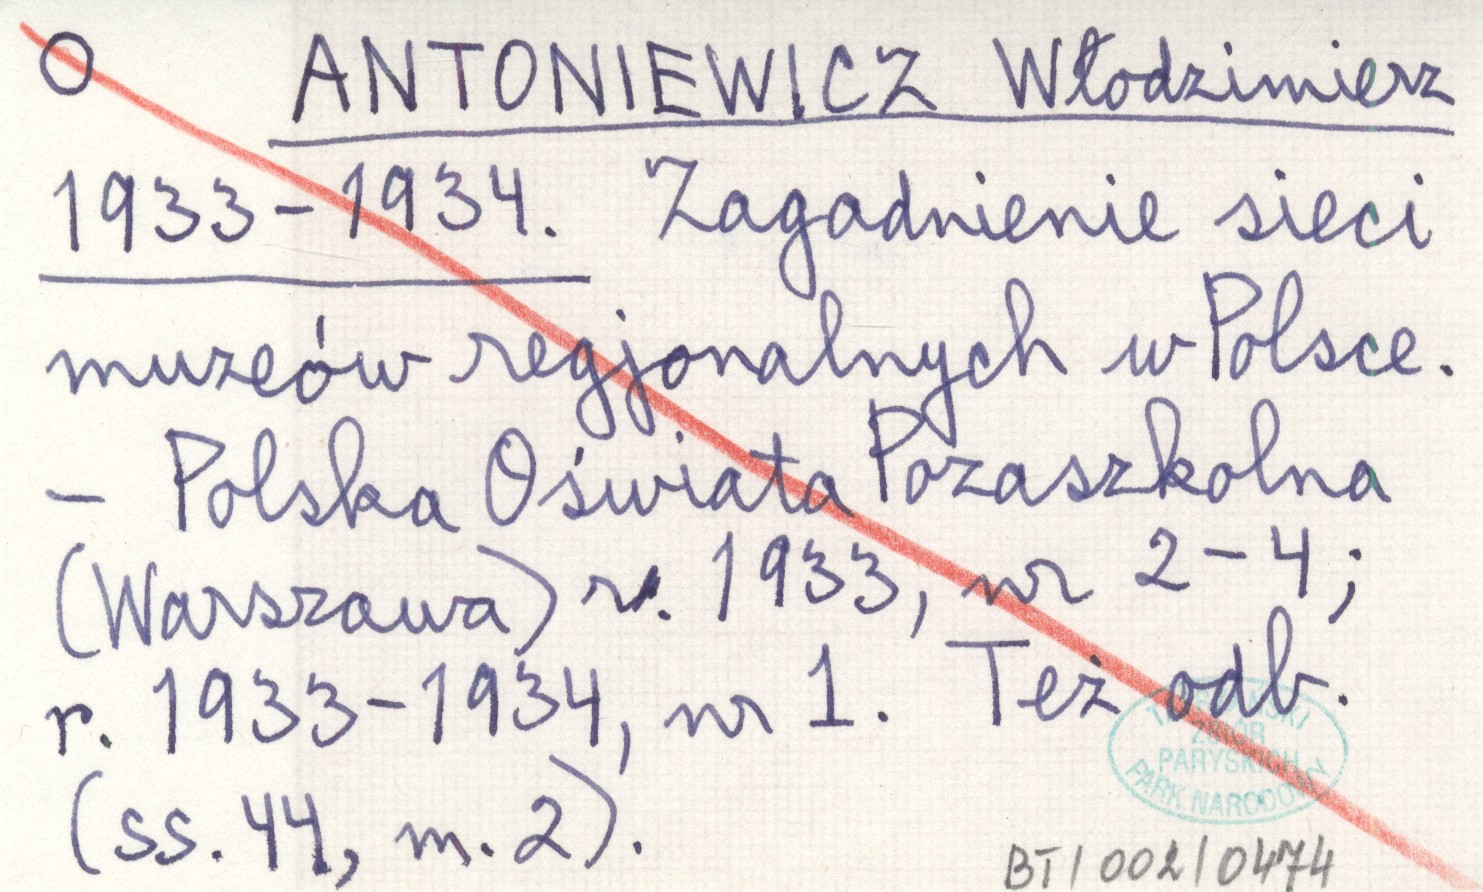 O ANTONIEWICZ Włodzimierz
1933-1934. Zagadnienie sieci
muzeów regjonalnych w Polsce.
- Polska Oświata Pozaszkolna
(Warszawa) r. 1933, nr 2-4;
r. 1933-1934, nr 1. Też odb.
(ss. 44, m. 2).
TATRZAŃSKI
ZBIÓR
PARYSKICH
PARK NARODOWY
BT/002/0474